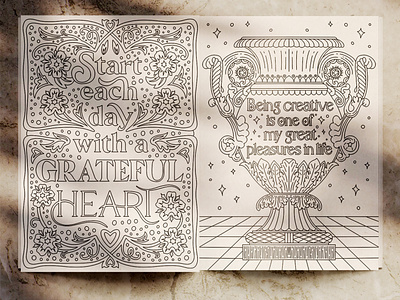 Start
each
day
with a
GRATEFUL
HEART
Being creative
is one of
my great
pleasures in life